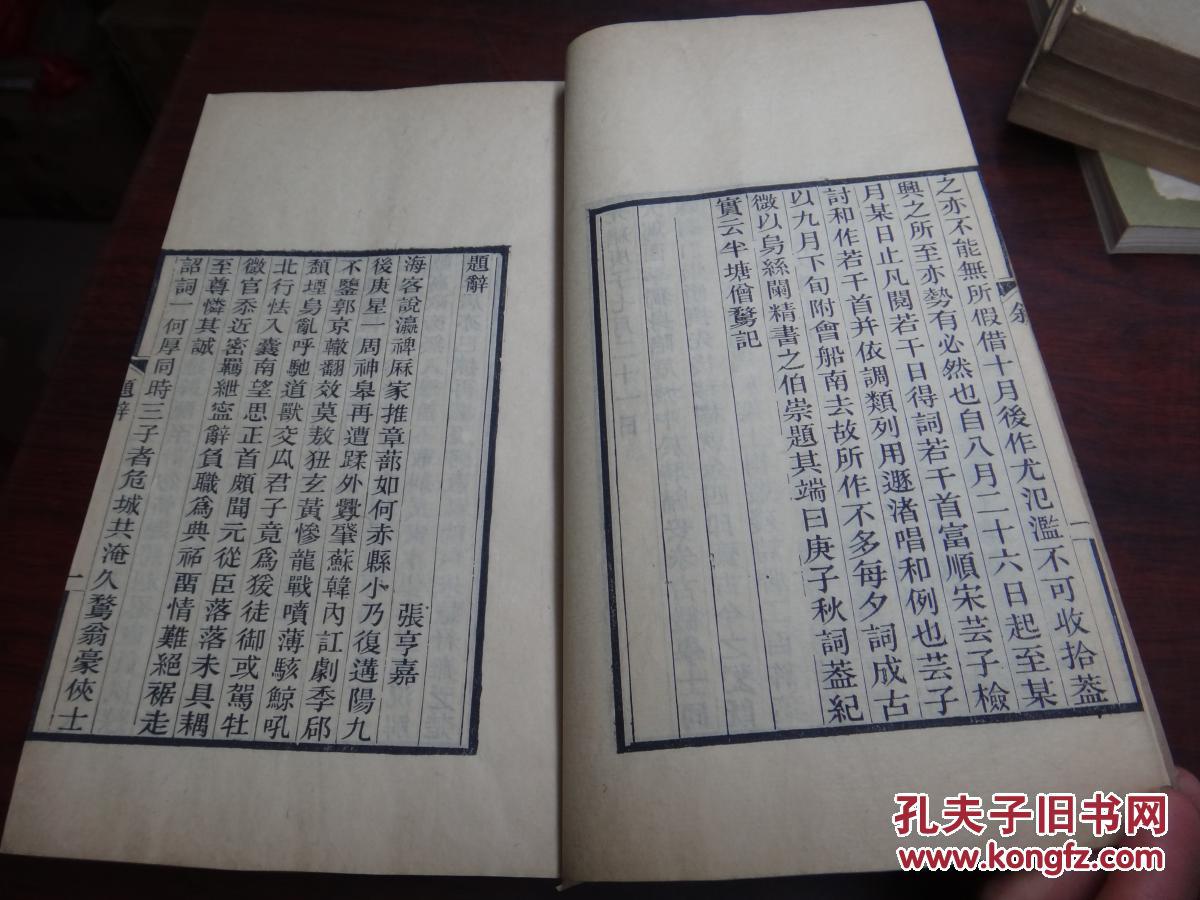 之亦不能無所假借十月後作尤氾濫不可收拾葢
興之所至亦勢有必然也自八月二十六日起至某
月某日止凡閱若干日得詞若干首富順宋芸子檢
討和作若干首并依調類列用遯渚唱和例也芸子
以九月下旬附會船南去故所作不多每夕詞成古
微以烏絲闌精書之伯崇題其端曰庚子秋詞葢紀
實云半塘僧鶩記
敘
一
題辭
張亨嘉
海客說瀛裨麻家推章蔀如何赤縣小乃復遘陽九
後庚星一周神皋再遭蹂外釁肇蘇韓內訌劇季郈
不鑒郭京轍翻效莫敖狃玄黃慘龍戰噴薄駭鯨吼
頹堙烏亂呼馳道獸交瓜君子竟爲猨徒御或駕牡
北行怯入囊南望思正首頗聞元從臣落落未具耦
微官忝近密羈紲寍辭負職爲典祏畱情難絕裾走
至尊憐其誠
詔詞一何厚同時三子者危城共淹久鶩翁豪俠士
題辭
一
孔夫子旧书网
www.kongfz.com